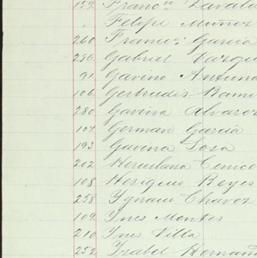 159 Franco Zavala
Felipe Muñoz
260 Franco García
236 Gabriel Vargu
91 Gavino Antuna
106 Gertrudis Rami
280 Gavina Alvarez
107 German García
193 Gavena Sosa
202 Herculana
108 Reyes
258 Ygnacio Chavez
109 Ynes Montes
210 Ynes Villa
252 Ysabel Hernan